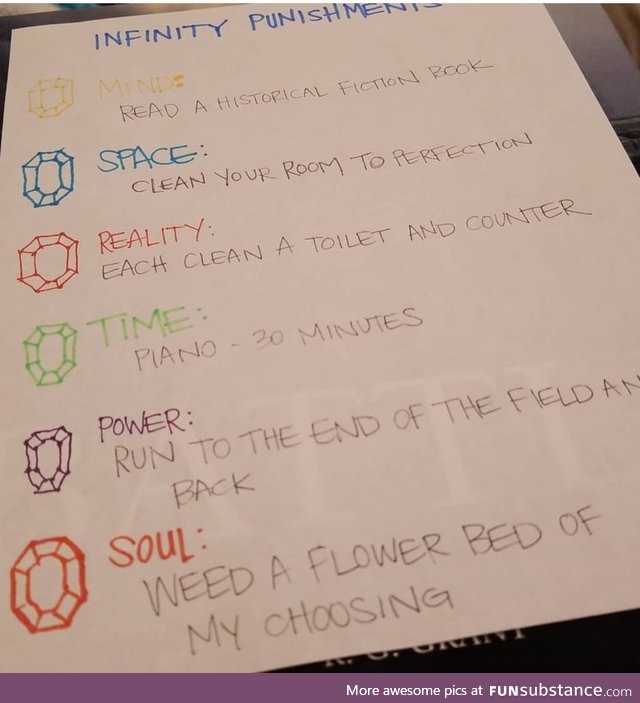 INFINITY PUNISHMENTS
MIND:
READ A HISTORICAL FICTION BOOK
SPACE:
CLEAN YOUR ROOM TO PERFECTION
REALITY:
EACH CLEAN A TOILET AND COUNTER
TIME:
PIANO - 30 MINUTES
POWER:
RUN TO THE END OF THE FIELD AN
BACK
SOUL:
WEED A FLOWER BED OF
MY CHOOSING
More awesome pics at FUNsubstance.com